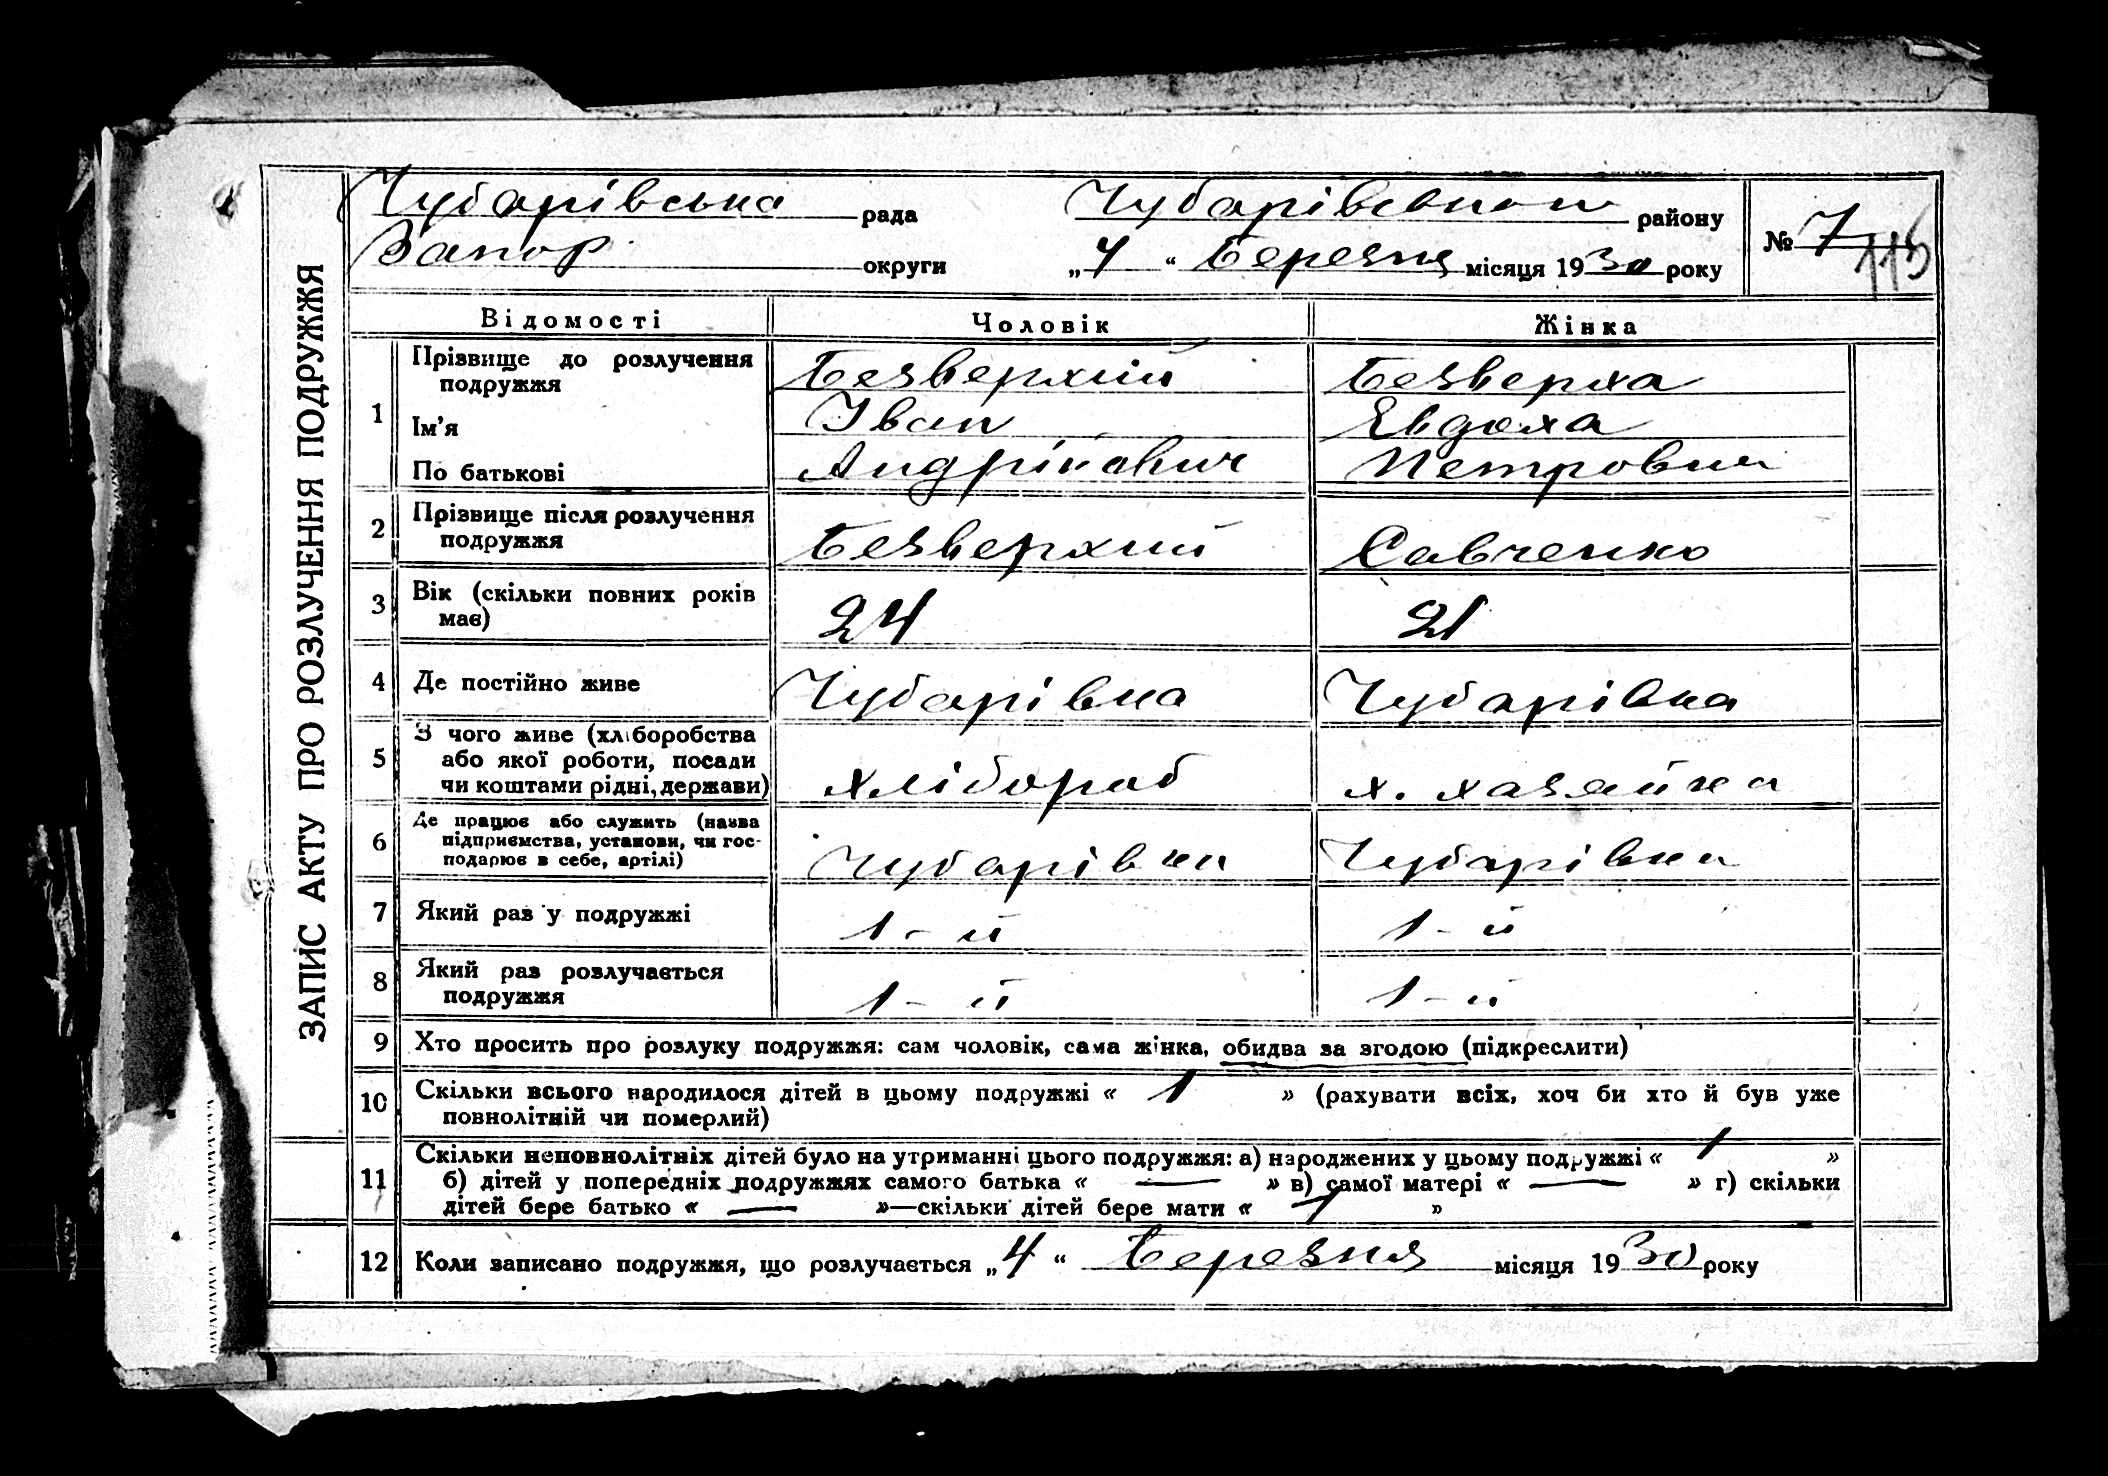 ЗАПИС АКТУ ПРО РОЗЛУЧЕННЯ ПОДРУЖЖЯ
Чубарівська рада Чубарівського району
Запор округи „4“ Березня місяця 1930 року
№ 7 115
Відомості Чоловік Жінка
1 Прізвище до розлучення подружжя Безверхий Безверха
Ім'я Іван Евдоха
По батькові Андрійович Петровна
2 Прізвище після розлучення подружжя Безверхий Савченко
3 Вік (скільки повних років має) 24 21
4 Де постійно живе Чубарівка Чубарівка
5 З чого живе (хліборобства або якої роботи, посади чи коштами рідні, держави) хлібороб х. хазяйка
6 Де працює або служить (назва підприємства, установи, чи господарює в себе, артілі) Чубарівка Чубарівка
7 Який раз у подружжі 1-й 1-й
8 Який раз розлучається подружжя 1-й 1-й
9 Хто просить про розлуку подружжя: сам чоловік, сама жінка, обидва за згодою (підкреслити)
10 Скільки всього народилося дітей в цьому подружжі « 1 » (рахувати всіх, хоч би хто й був уже
повнолітній чи померлий)
11 Скільки неповнолітніх дітей було на утриманні цього подружжя: а) народжених у цьому подружжі « 1 »
б) дітей у попередніх подружжях самого батька « — » в) самої матері « — » г) скільки
дітей бере батько « — »—скільки дітей бере мати « 1 »
12 Коли записано подружжя, що розлучається „4“ Березня місяця 1930 року